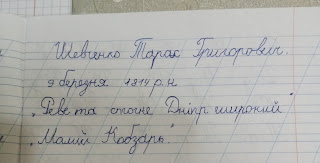 Шевченко Тарас Григорович.
9 березня 1814 р.н.
„Реве та стогне Дніпр широкий"
„Малий Кобзарь."